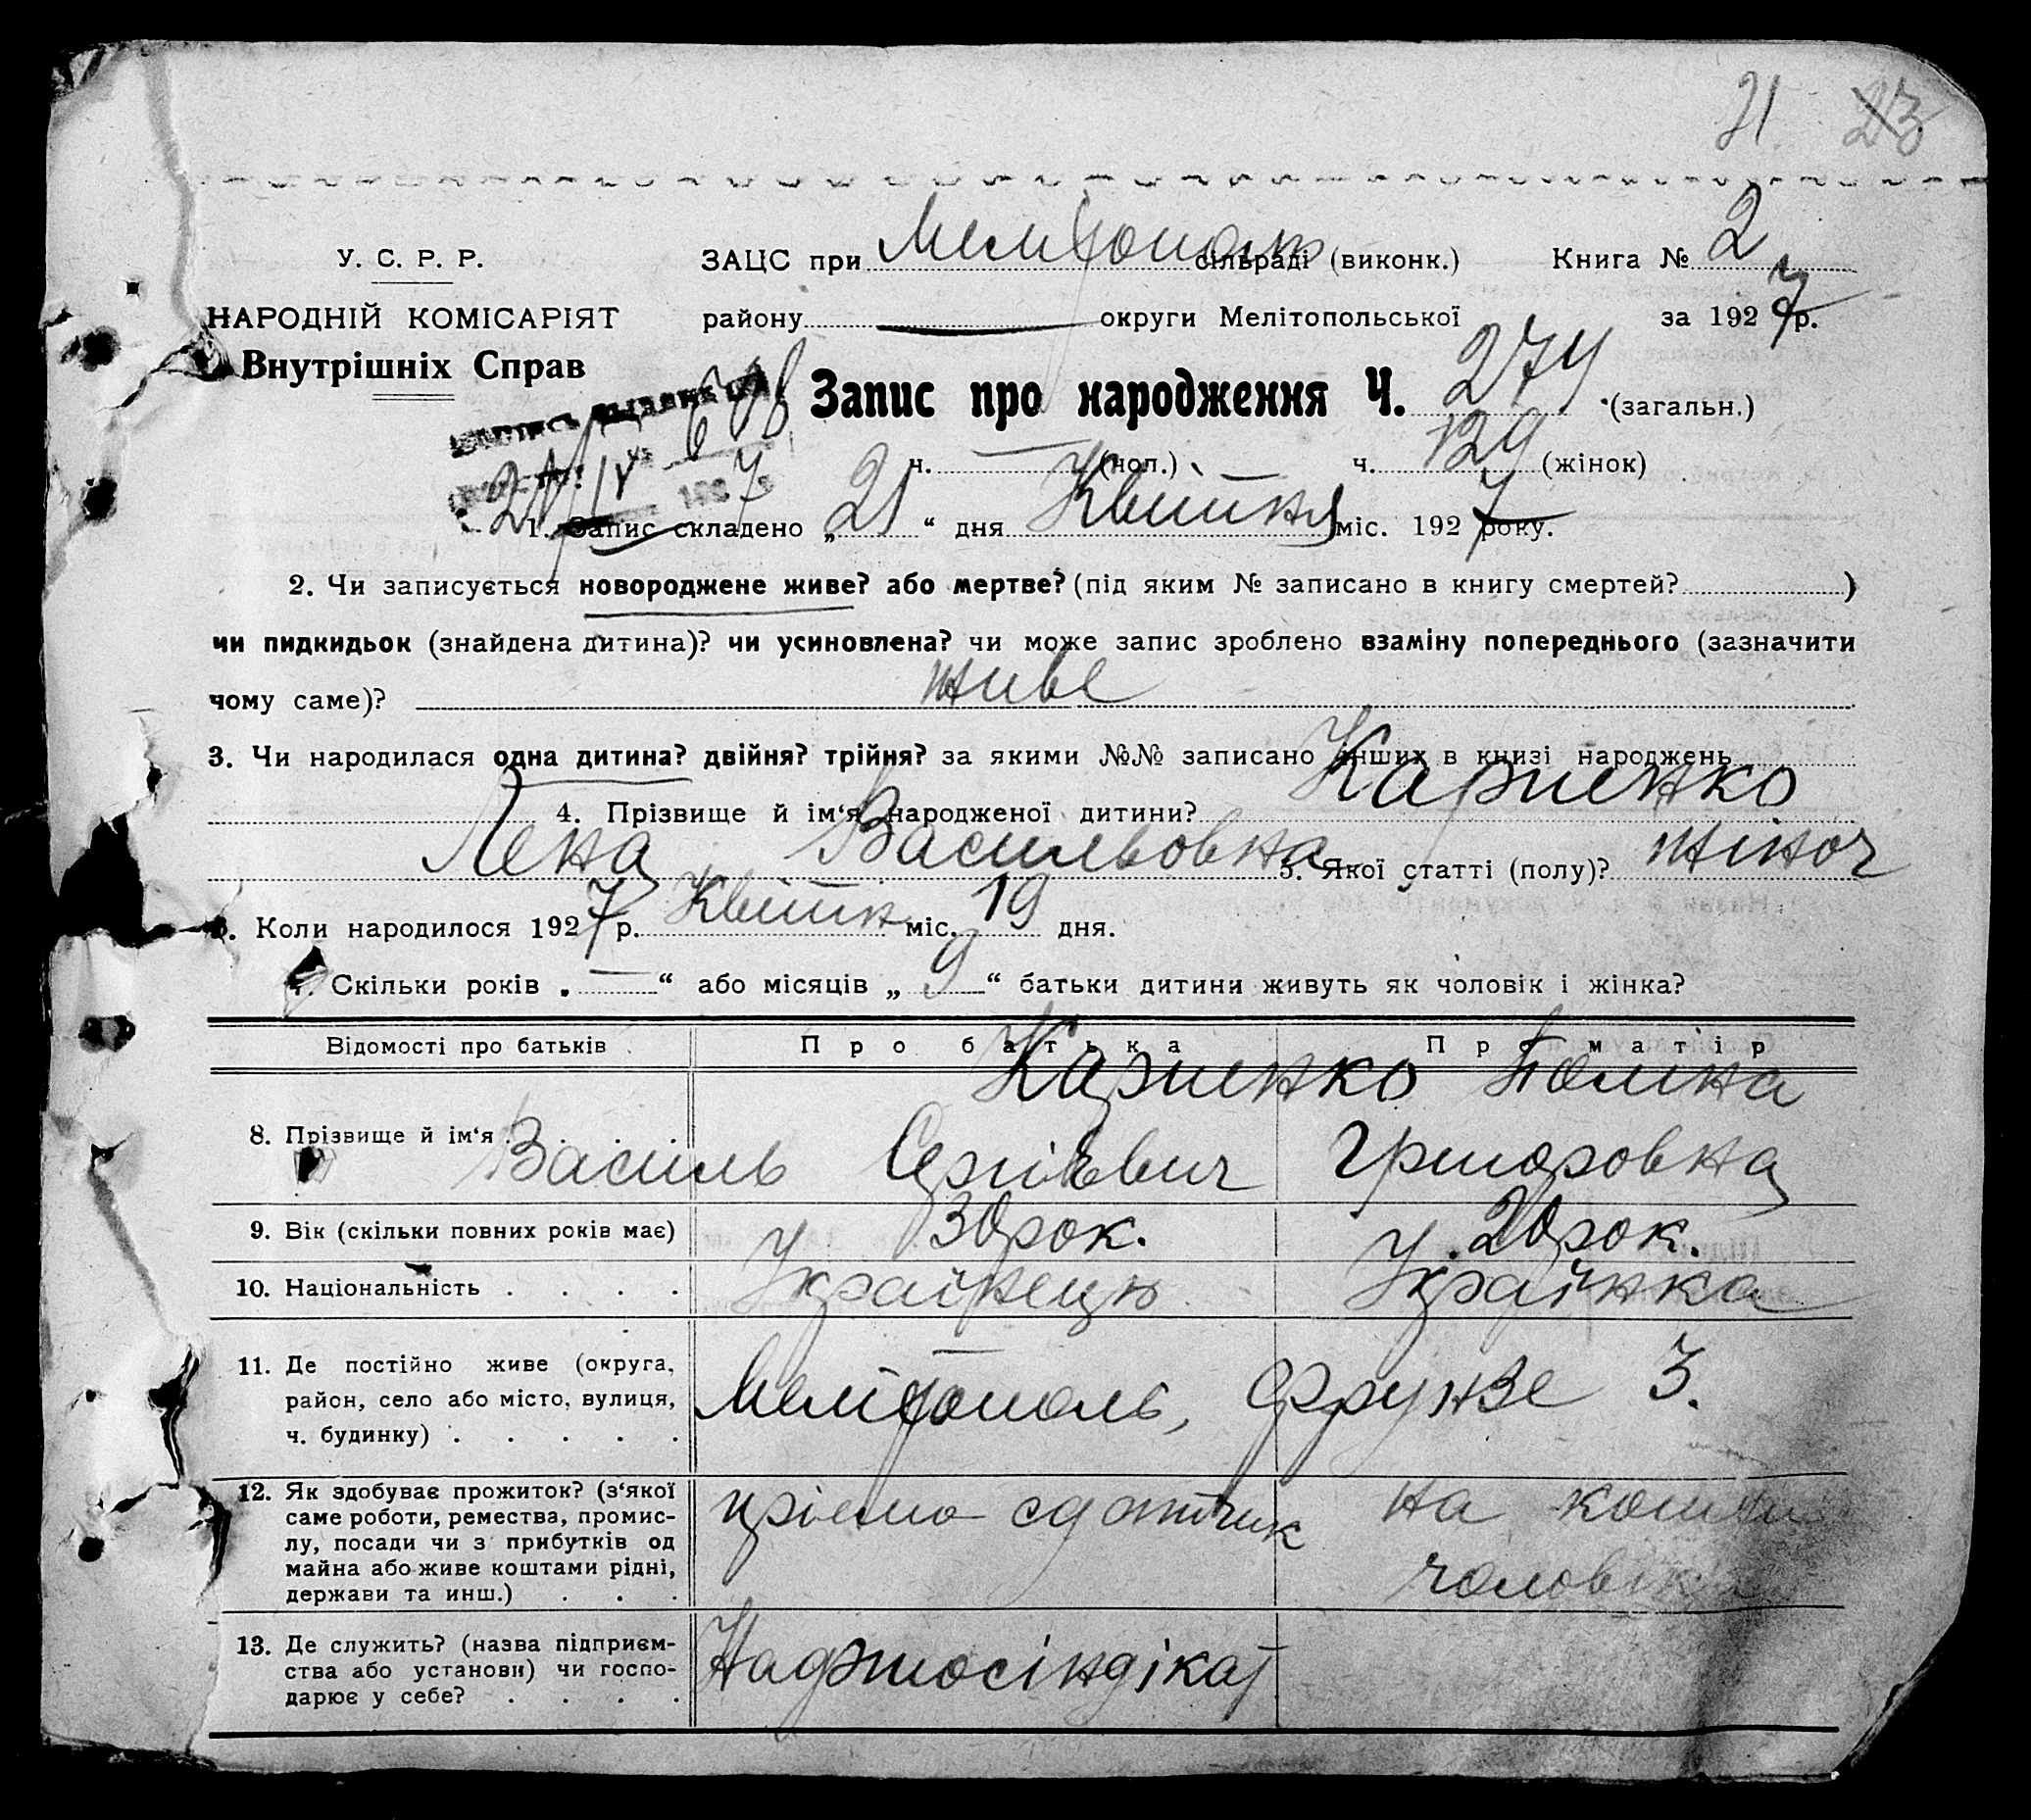 21 23
У. С. Р. Р.
ЗАЦС при Мелитополь сільраді (виконк.) Книга № 2
НАРОДНІЙ КОМІСАРІЯТ
району — округи Мелітопольської за 1927 р.
Внутрішніх Справ
Запис про народження Ч. 274 (загальн.)
ч. — (чол.) ч. 129 (жінок)
1. Запис складено „21“ дня Квитня міс. 1927 року.
2. Чи записується новороджене живе? або мертве? (під яким № записано в книгу смертей? )
чи пидкидьок (знайдена дитина)? чи усиновлена? чи може запис зроблено взаміну попереднього (зазначити
чому саме)? живе
3. Чи народилася одна дитина? двійня? трійня? за якими №№ записано инших в книзі народжень
4. Прізвище й ім‘я народженої дитини? Карпенко
Лена Васильовна 5. Якої статті (полу)? жіноч
6. Коли народилося 1927 р. Квітн міс. 19 дня.
7. Скільки років „—“ або місяців „9“ батьки дитини живуть як чоловік і жінка?
Відомості про батьків Про батька Про матір
Карпенко Поліна
8. Прізвище й ім‘я . . . . Василь Сергієвич Григоровна
9. Вік (скільки повних років має) 30 рок. 20 рок.
10. Національність . . . . Українець Українка
11. Де постійно живе (округа,
район, село або місто, вулиця, Мелітополь, Фрунзе 3.
ч. будинку) . . . . .
12. Як здобуває прожиток? (з‘якої приємо сдатчик на кошти
саме роботи, ремества, промис-
лу, посади чи з прибутків од
майна або живе коштами рідні, чоловіка
держави та инш.) . . .
13. Де служить? (назва підприєм- Наджосіндікат
ства або установи) чи госпо-
дарює у себе? . . . .